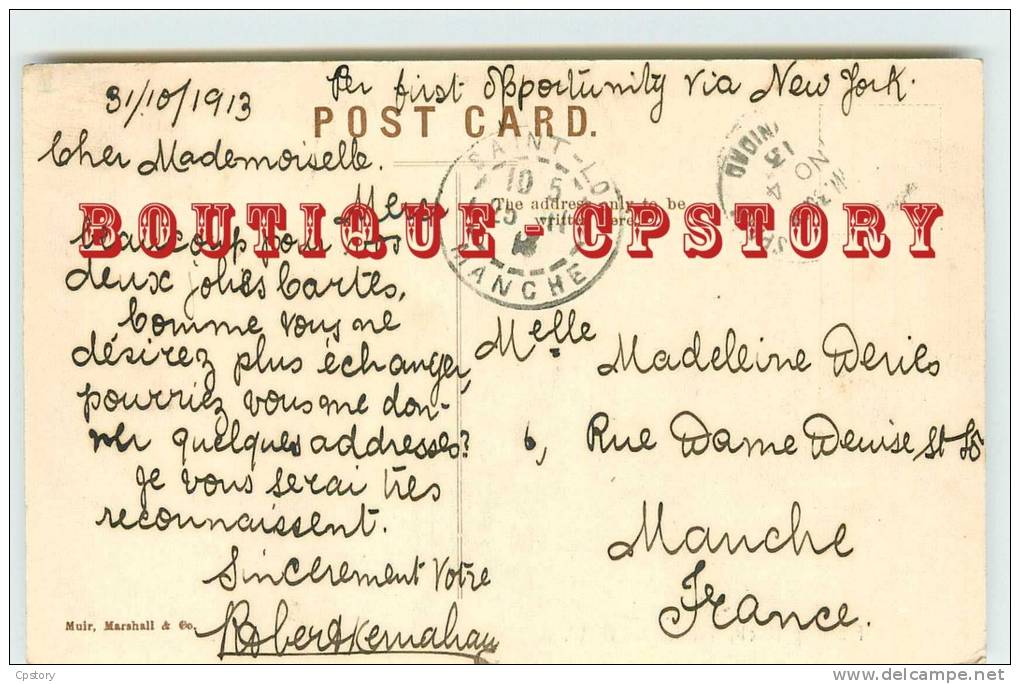 31/10/1913
Per first opportunity via New York.
POST CARD.
Cher Mademoiselle.
Merci
beaucoup pour vos
deux jolies Cartes.
Comme vous ne
désirez plus échanger,
pourriez vous me don-
ner quelques addresses?
Je vous serai très
reconnaissent.
Sincerement Votre
Robert Kernahan
Muir, Marshall & Co.
SAINT-LO
10 5
25 11
MANCHE
The address only to be
written here.
BOUTIQUE - CPSTORY
Melle Madeleine Deries
6, Rue Dame Denise St Lô
Manche
France.
Cpstory
delcampe.net